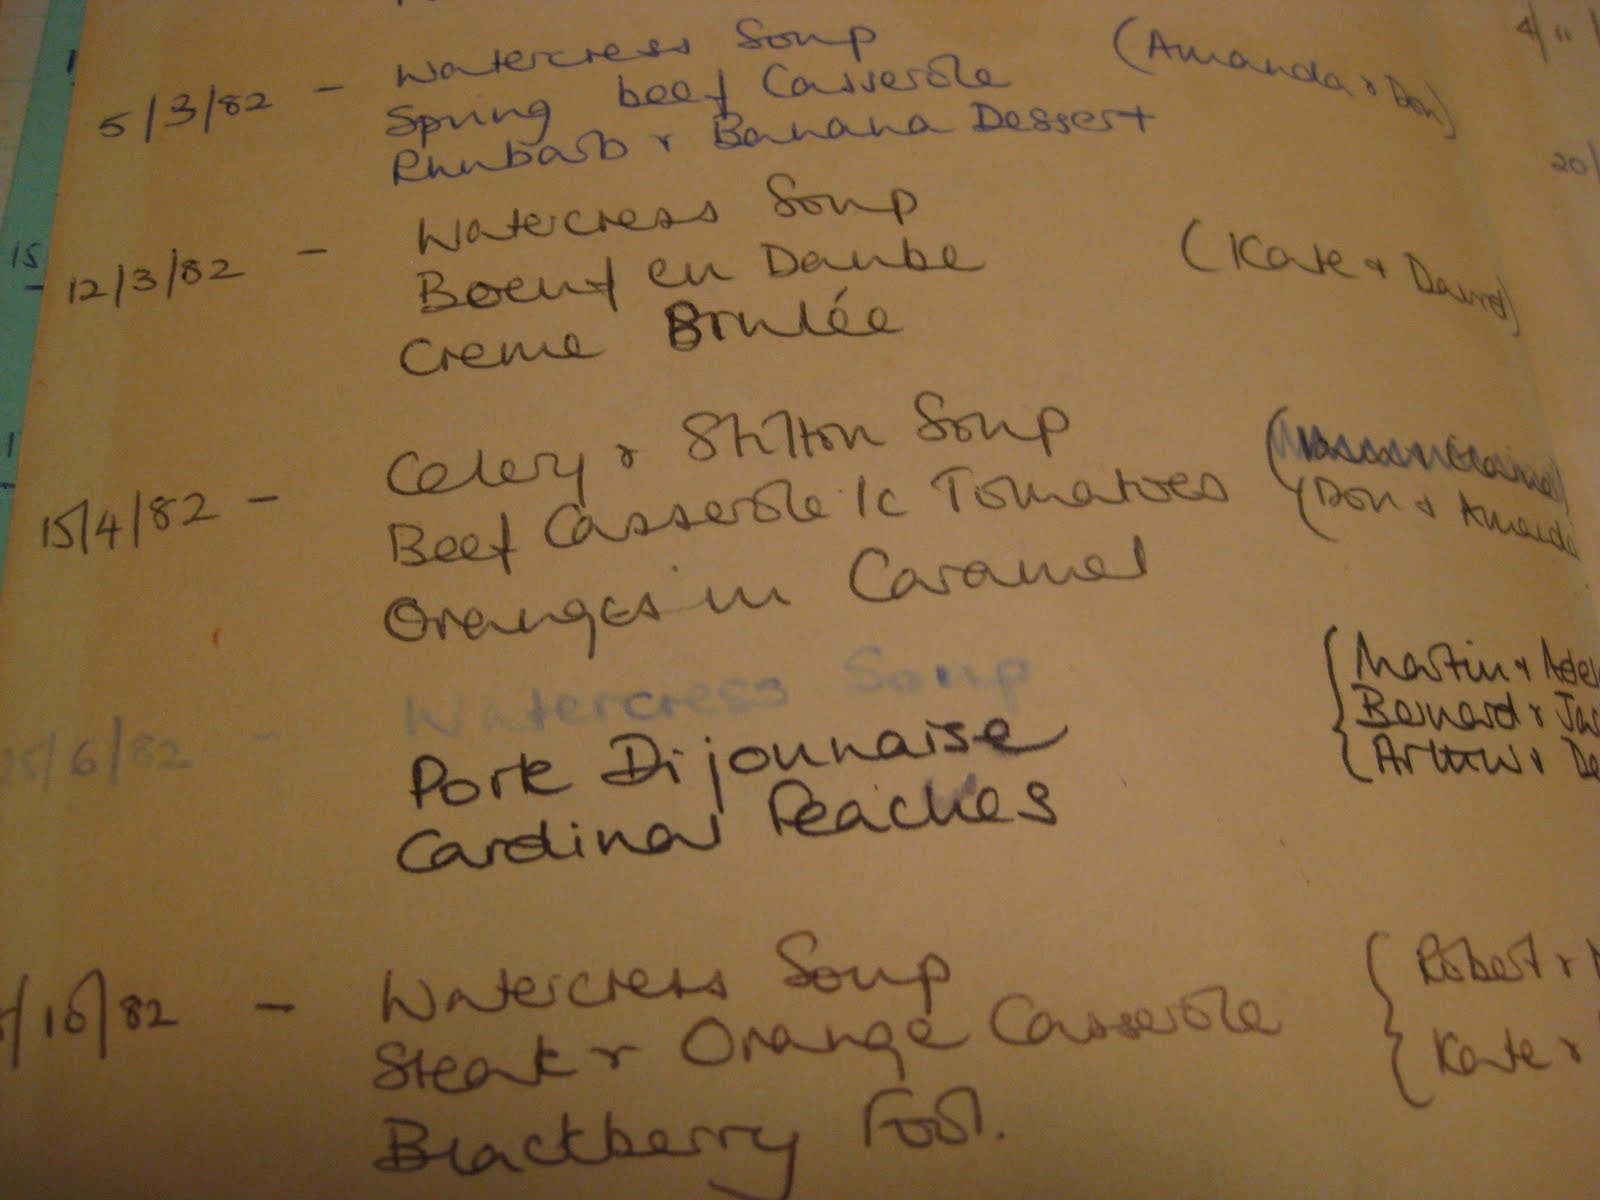 5/3/82 - Watercress Soup (Amanda & Don)
Spring beef Casserole
Rhubarb & Banana Dessert
12/3/82 - Watercress Soup
Boeuf en Daube (Kate & David)
Creme Brulée
15/4/82 - Celery & Stilton Soup
Beef Casserole /c Tomatoes (Don & Amanda
Oranges in Caramel
25/6/82 - Watercress Soup
Pork Dijonnaise { Martin &
Cardinal Peaches { Bernard &
{ Arthur &
/10/82 - Watercress Soup { Robert &
Steak & Orange Casserole { Kate &
Blackberry Fool.
4/11
20/
15